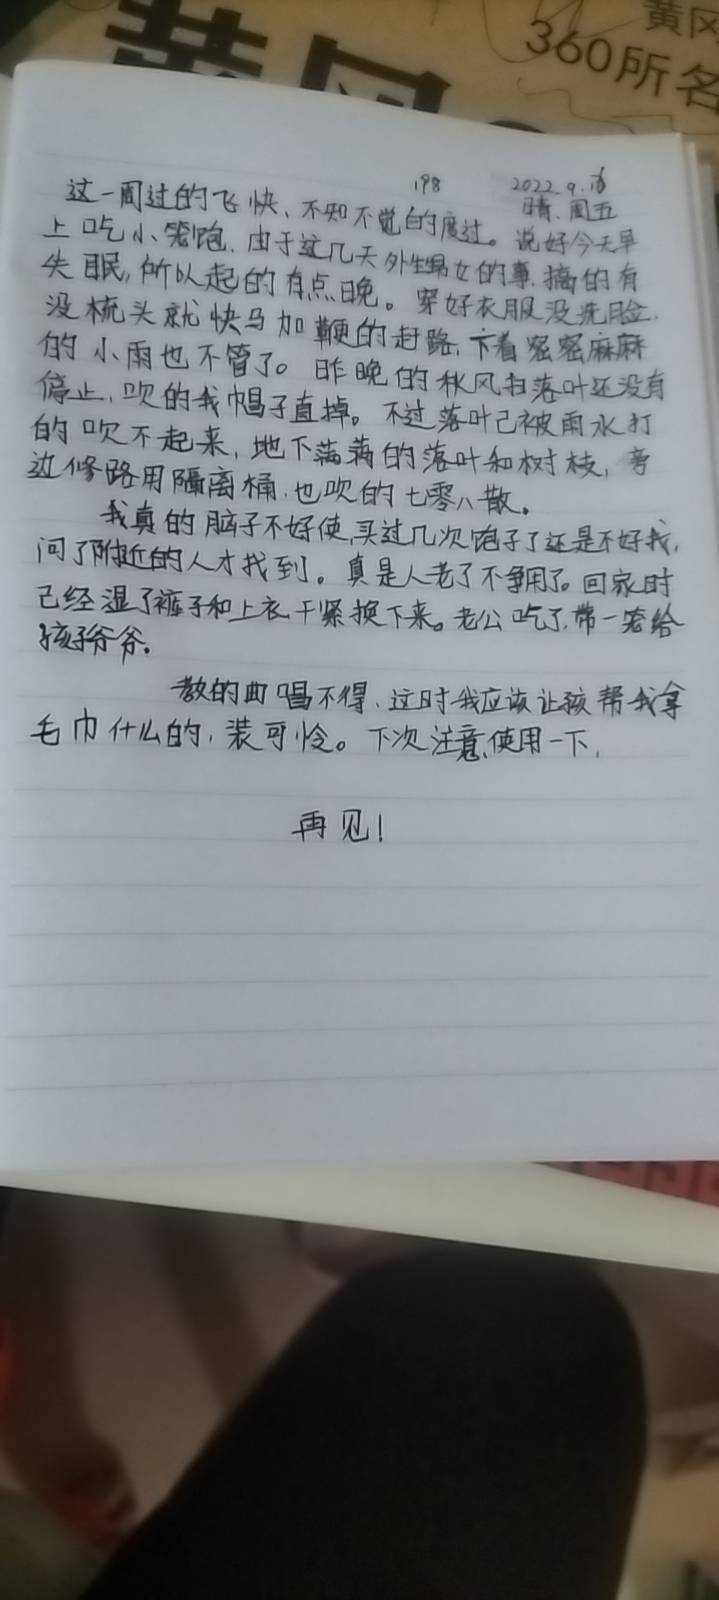 黄冈
360所名
黄冈
198 2022.9.16
晴.周五
这一周过的飞快、不知不觉的度过。说好今天早
上吃小笼饱.由于这几天外生男女的事.搞的有
失眠,所以起的有点晚。穿好衣服没洗脸.
没梳头就快马加鞭的赶路,下着密密麻麻
的小雨也不管了。昨晚的秋风扫落叶还没有
停止,吹的我帽子直掉。不过落叶已被雨水打
的吹不起来,地下满满的落叶和树枝,旁
边修路用隔离桶.也吹的七零八散。
我真的脑子不好使,买过几次饱子了还是不好找,
问了附近的人才找到。真是人老了不争用了。回家时
已经湿了裤子和上衣干紧换下来。老公吃了.带一笼给
孩子爷爷.
教的曲唱不得、这时我应该让孩帮我拿
毛巾什么的,装可怜。下次注意,使用一下,
再见!